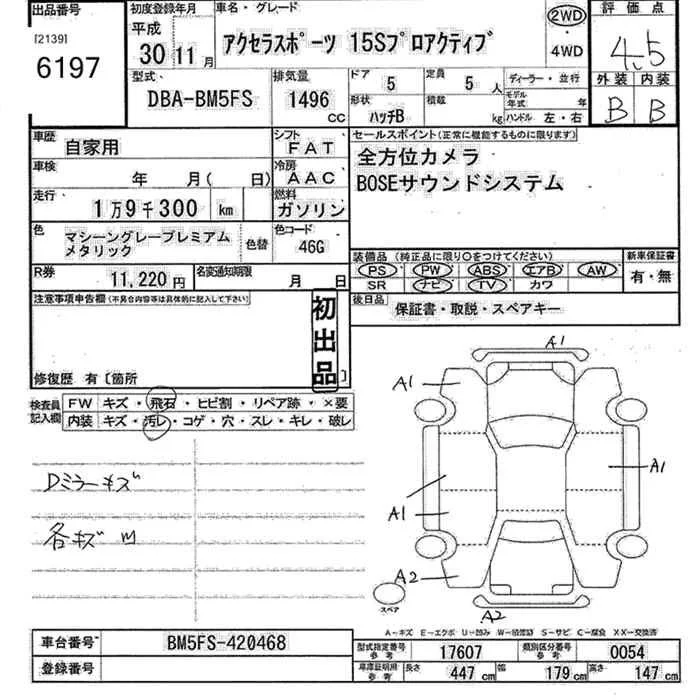 出品番号
[2139]
6197
初度登録年月
平成
30 11月
車名・グレード
アクセラスポーツ 15Sプロアクティブ
2WD
4WD
評価点
4.5
外装 内装
B B
型式
DBA-BM5FS
排気量
1496
cc
ドア
5
定員
5
人
ディーラー・並行
形状
ハッチB
積載
kg
モデル年式
年
ハンドル 左・右
車歴
自家用
シフト
FAT
車検
年 月( 日)
冷房
AAC
走行
1万9千300 km
燃料
ガソリン
色
マシーングレープレミアム
メタリック
色替
色コード
46G
R券
11,220円
名変通知期限
月 日
セールスポイント(正常に機能するものに限ります)
全方位カメラ
BOSEサウンドシステム
装備品 (純正品に限り○をつけてください)
PS PW ABS エアB AW
SR ナビ TV カワ
新車保証書
有・無
後日品
保証書・取説・スペアキー
注意事項申告欄(不具合内容等は具体的に記入して下さい)
初出品
修復歴 有〔箇所 〕
検査員記入欄
FW キズ・飛石・ヒビ割・リペア跡・×要
内装 キズ・汚レ・コゲ・穴・スレ・キレ・破レ
Dミラーキズ
各キズ
A1
A1
A1
A1
A2
A2
スペア
A－キズ E－エクボ U－凹み W－補修跡 S－サビ C－腐食 XX－交換済
車台番号
BM5FS-420468
登録番号
型式指定番号
参考
17607
類別区分番号
参考
0054
車庫証明用
参考
長さ
447 cm
幅
179 cm
高さ
147 cm